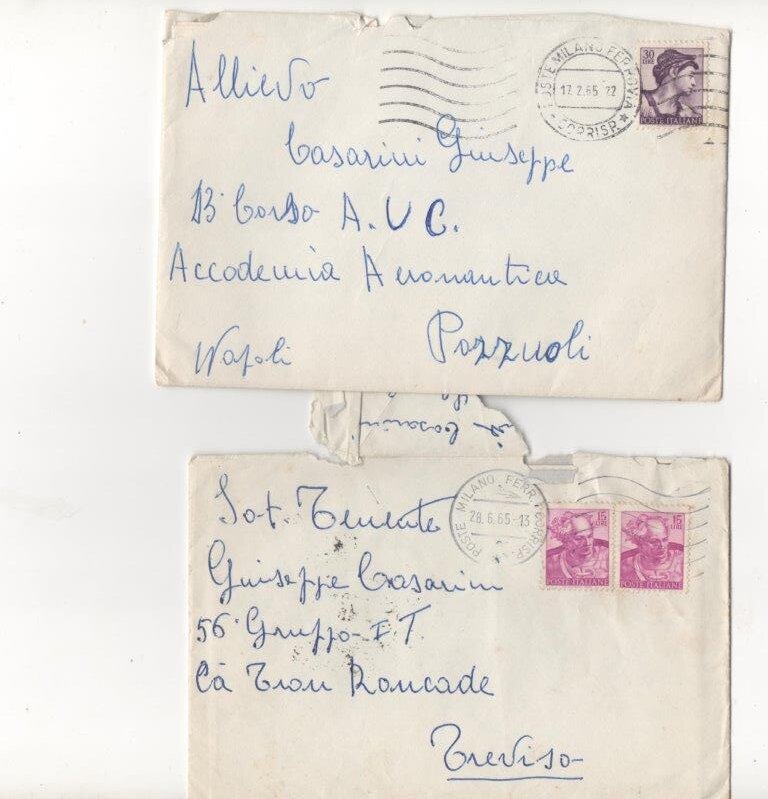 Allievo
POSTE MILANO FERROVIA
17.2.65 22
CORRISP.
30
LIRE
POSTE ITALIANE
Casarini Giuseppe
13° Corso A.U.C.
Accademia Aeronautica
Napoli Pozzuoli
Casarini
Sot. Tenente
POSTE MILANO FERR. CORRISP.
28.6.65-13
15
LIRE
POSTE ITALIANE
15
LIRE
POSTE ITALIANE
Giuseppe Casarini
56° Gruppo I.T.
Cà Tron Roncade
Treviso